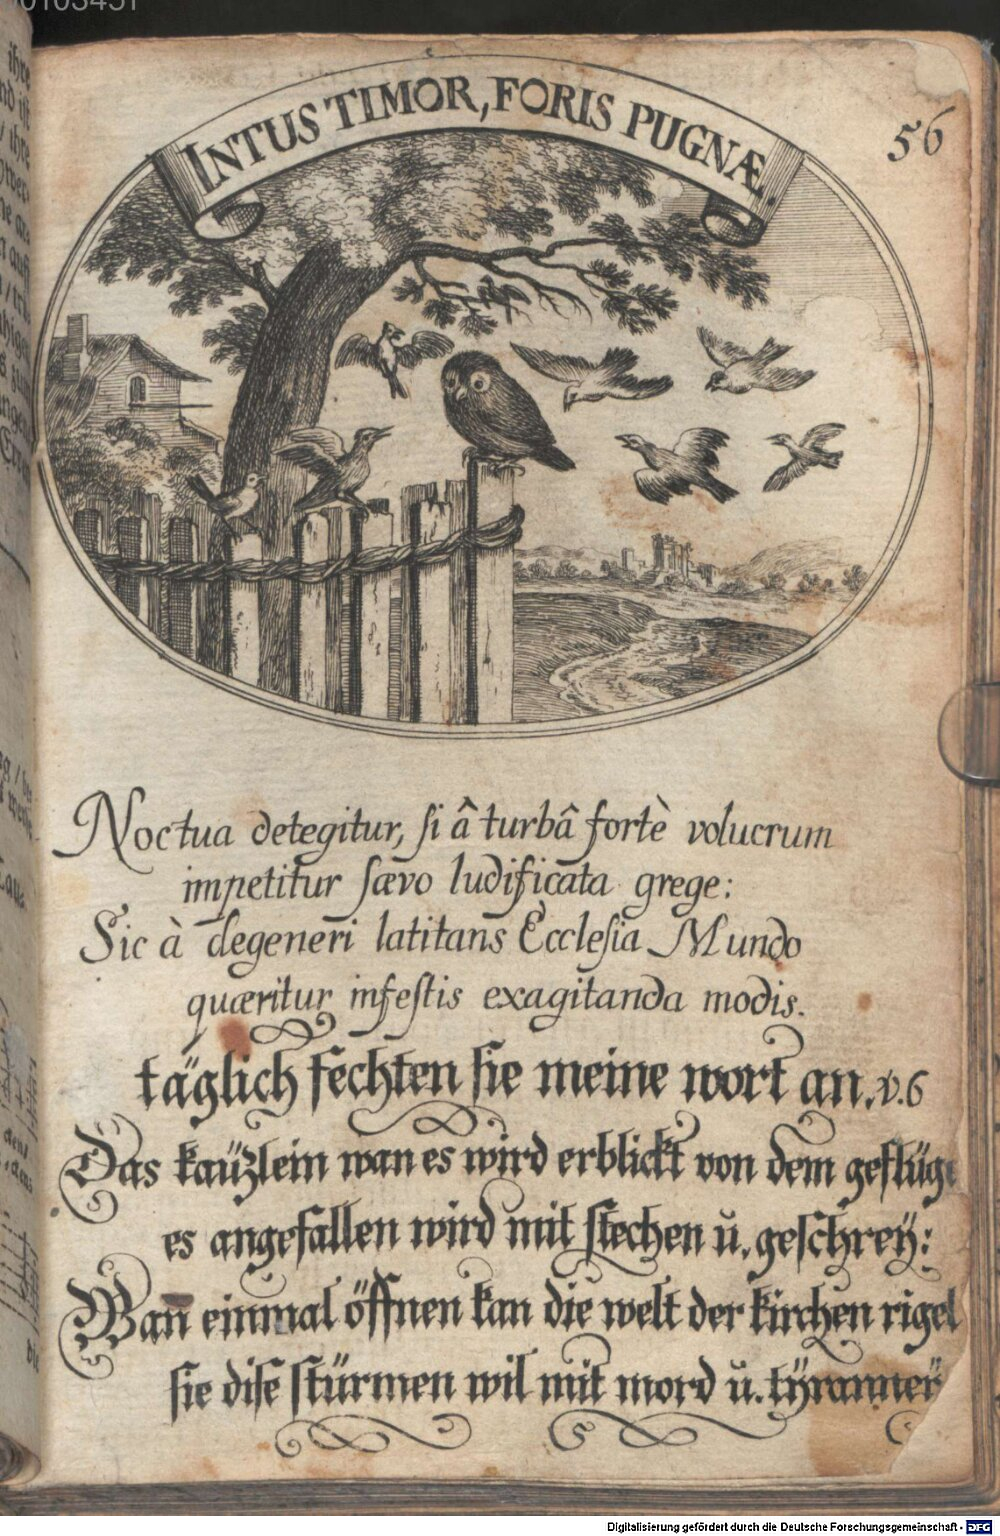 INTUS TIMOR, FORIS PUGNÆ.
56
Noctua detegitur, ſi â turbâ fortè volucrum
impetitur ſævo ludificata grege:
Sic à degeneri latitans Eccleſia Mundo
quæritur infeſtis exagitanda modis.
täglich fechten ſie meine wort an. v. 6
Das kaüzlein wan es wird erblickt von dem geflüge
es angefallen wird mit ſtechen ŭ. geſchreÿ:
Wan̄ einmal öffnen kan die welt der kirchen rigel
ſie diſe ſtürmen wil mit mord ŭ. tÿranneÿ
Digitalisierung gefördert durch die Deutsche Forschungsgemeinschaft - DFG